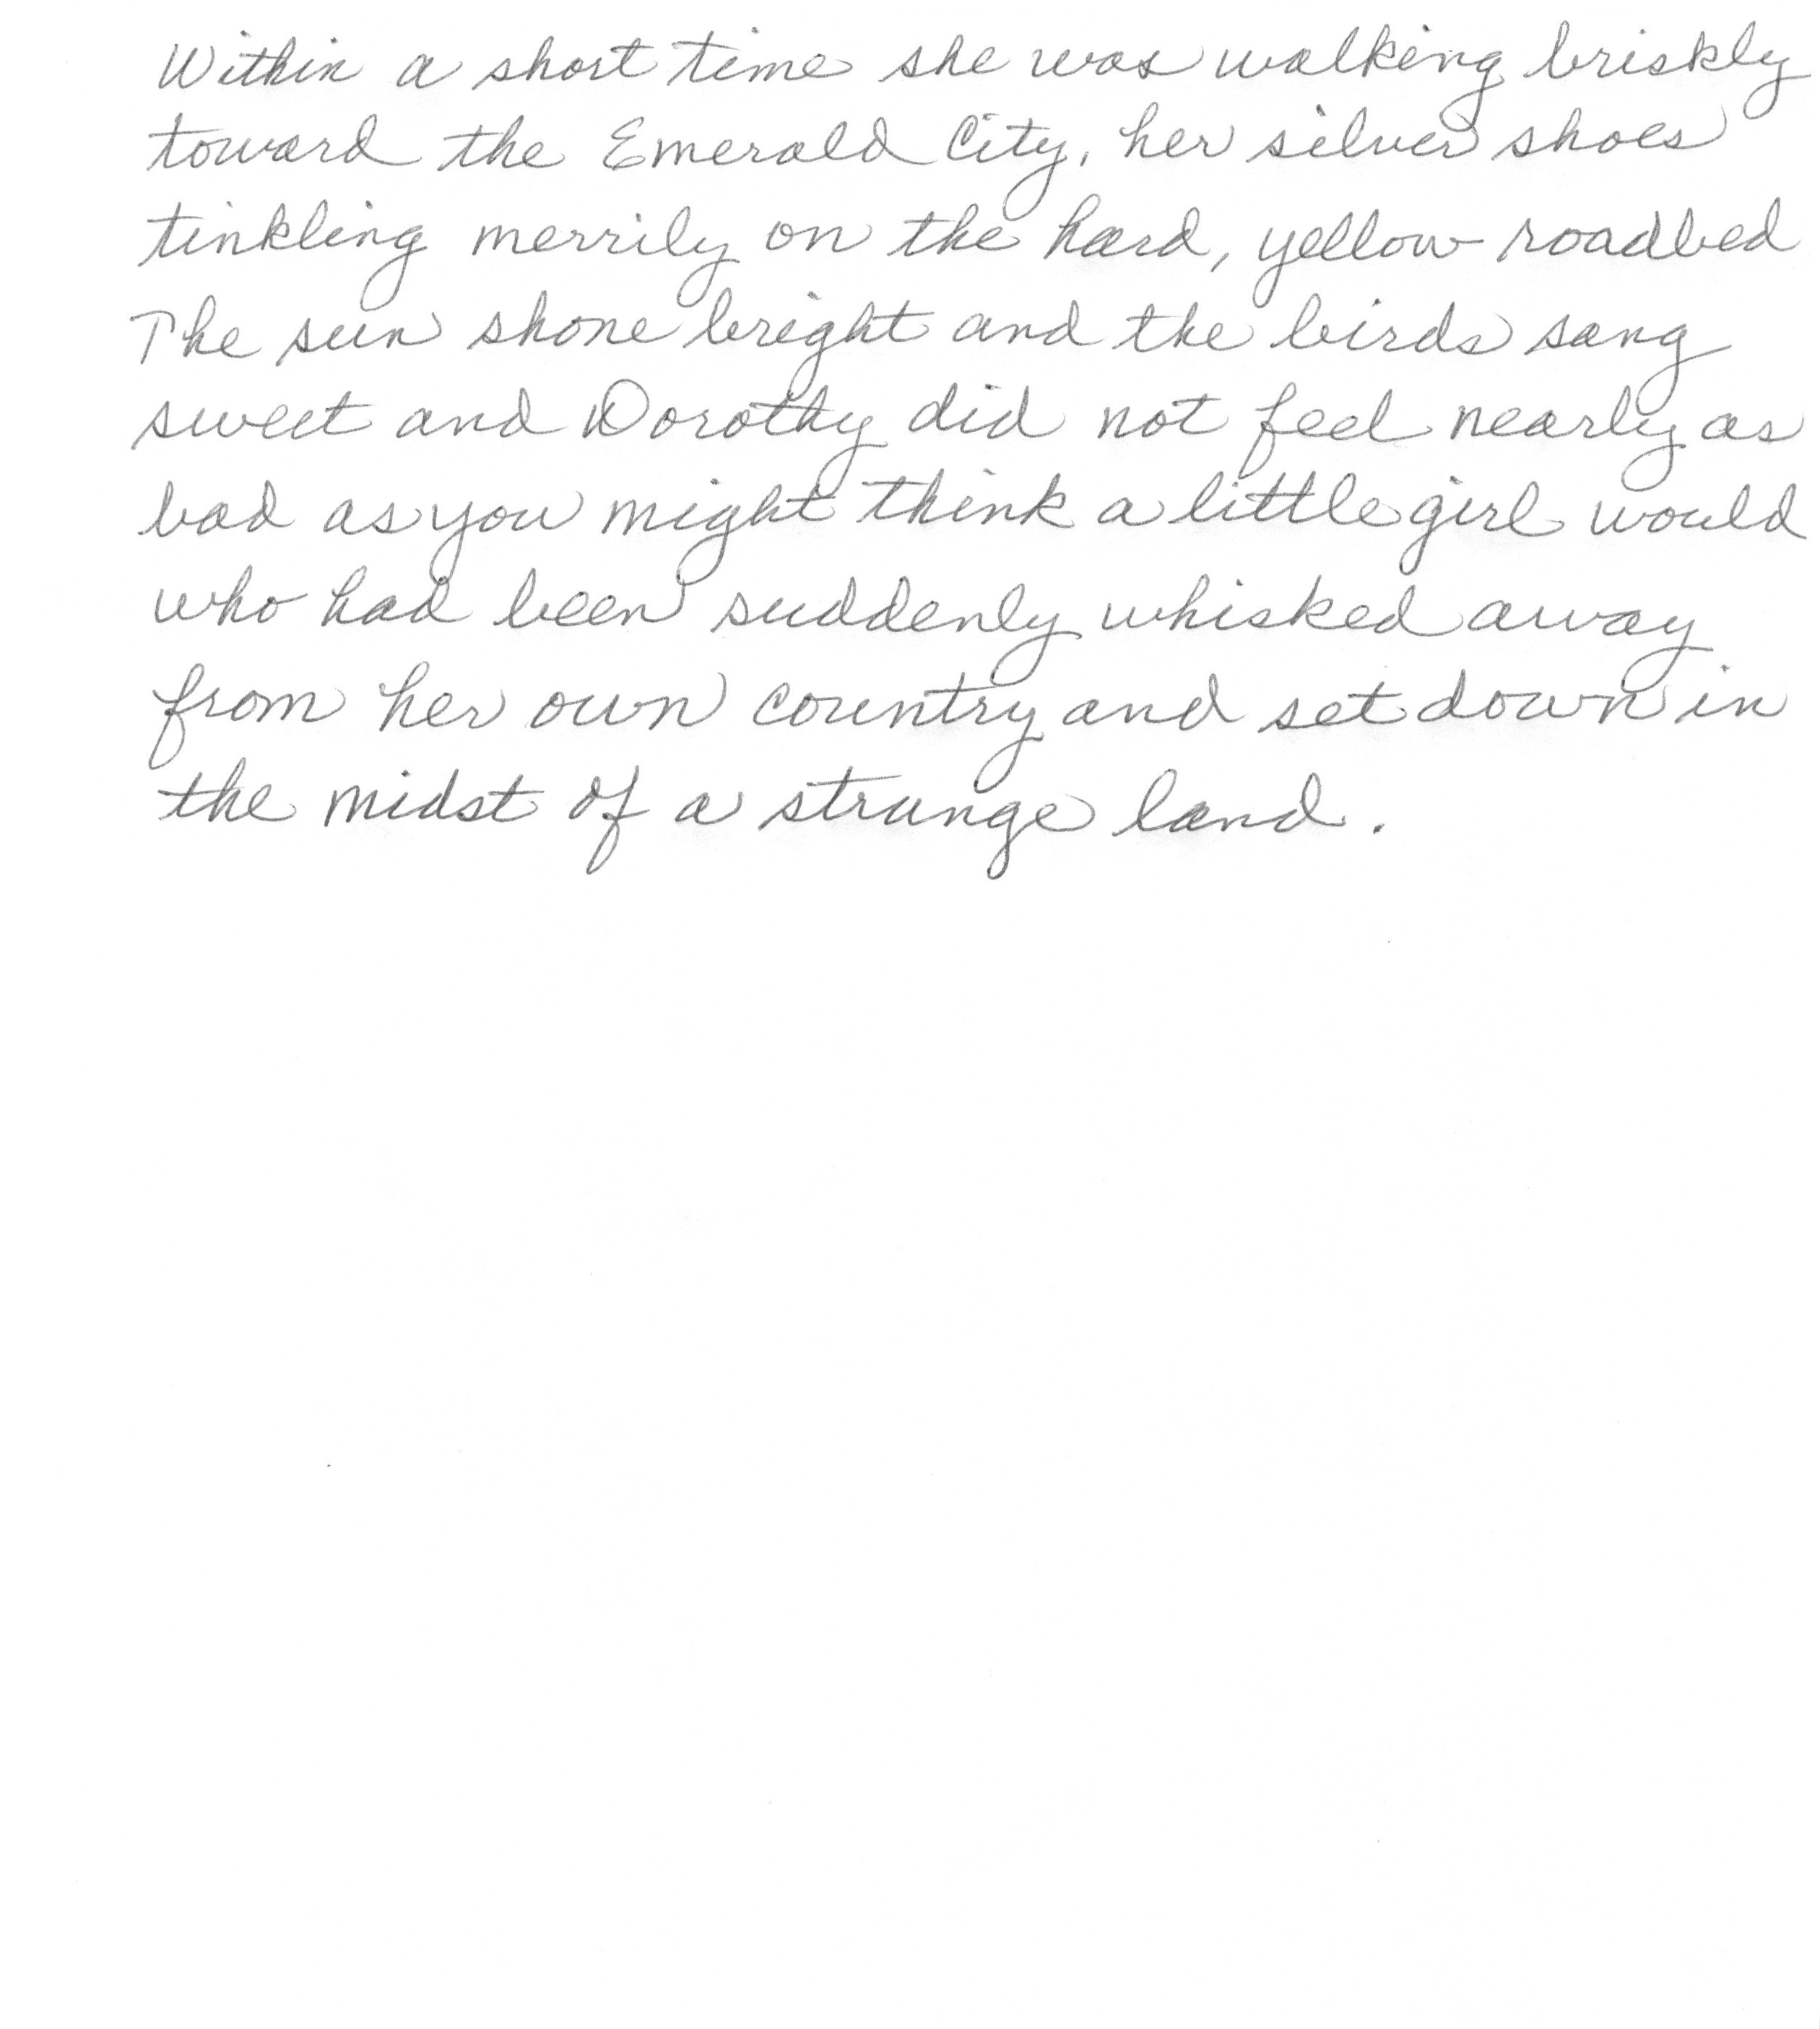 Within a short time she was walking briskly
toward the Emerald City, her silver shoes
tinkling merrily on the hard, yellow roadbed
The sun shone bright and the birds sang
sweet and Dorothy did not feel nearly as
bad as you might think a little girl would
who had been suddenly whisked away
from her own country and set down in
the midst of a strange land.